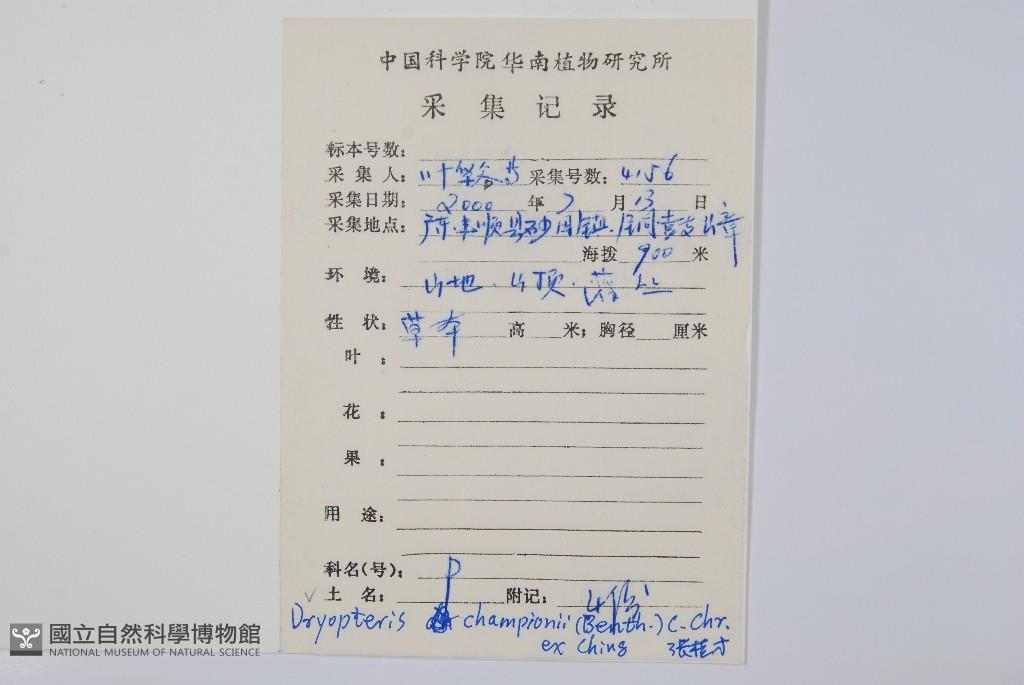 中国科学院华南植物研究所
采集记录
标本号数：
采集人：叶华谷 采集号数：4156
采集日期：2000年7月13日
采集地点：广东.丰顺县砂田镇.
海拨 900 米
环境：山地.山顶.灌丛
性状：草本 高 米；胸径 厘米
叶：
花：
果：
用途：
科名(号)：P
土名： 附记：4份
Dryopteris championii (Benth.) C. Chr.
ex Ching 张桂才
國立自然科學博物館
NATIONAL MUSEUM OF NATURAL SCIENCE